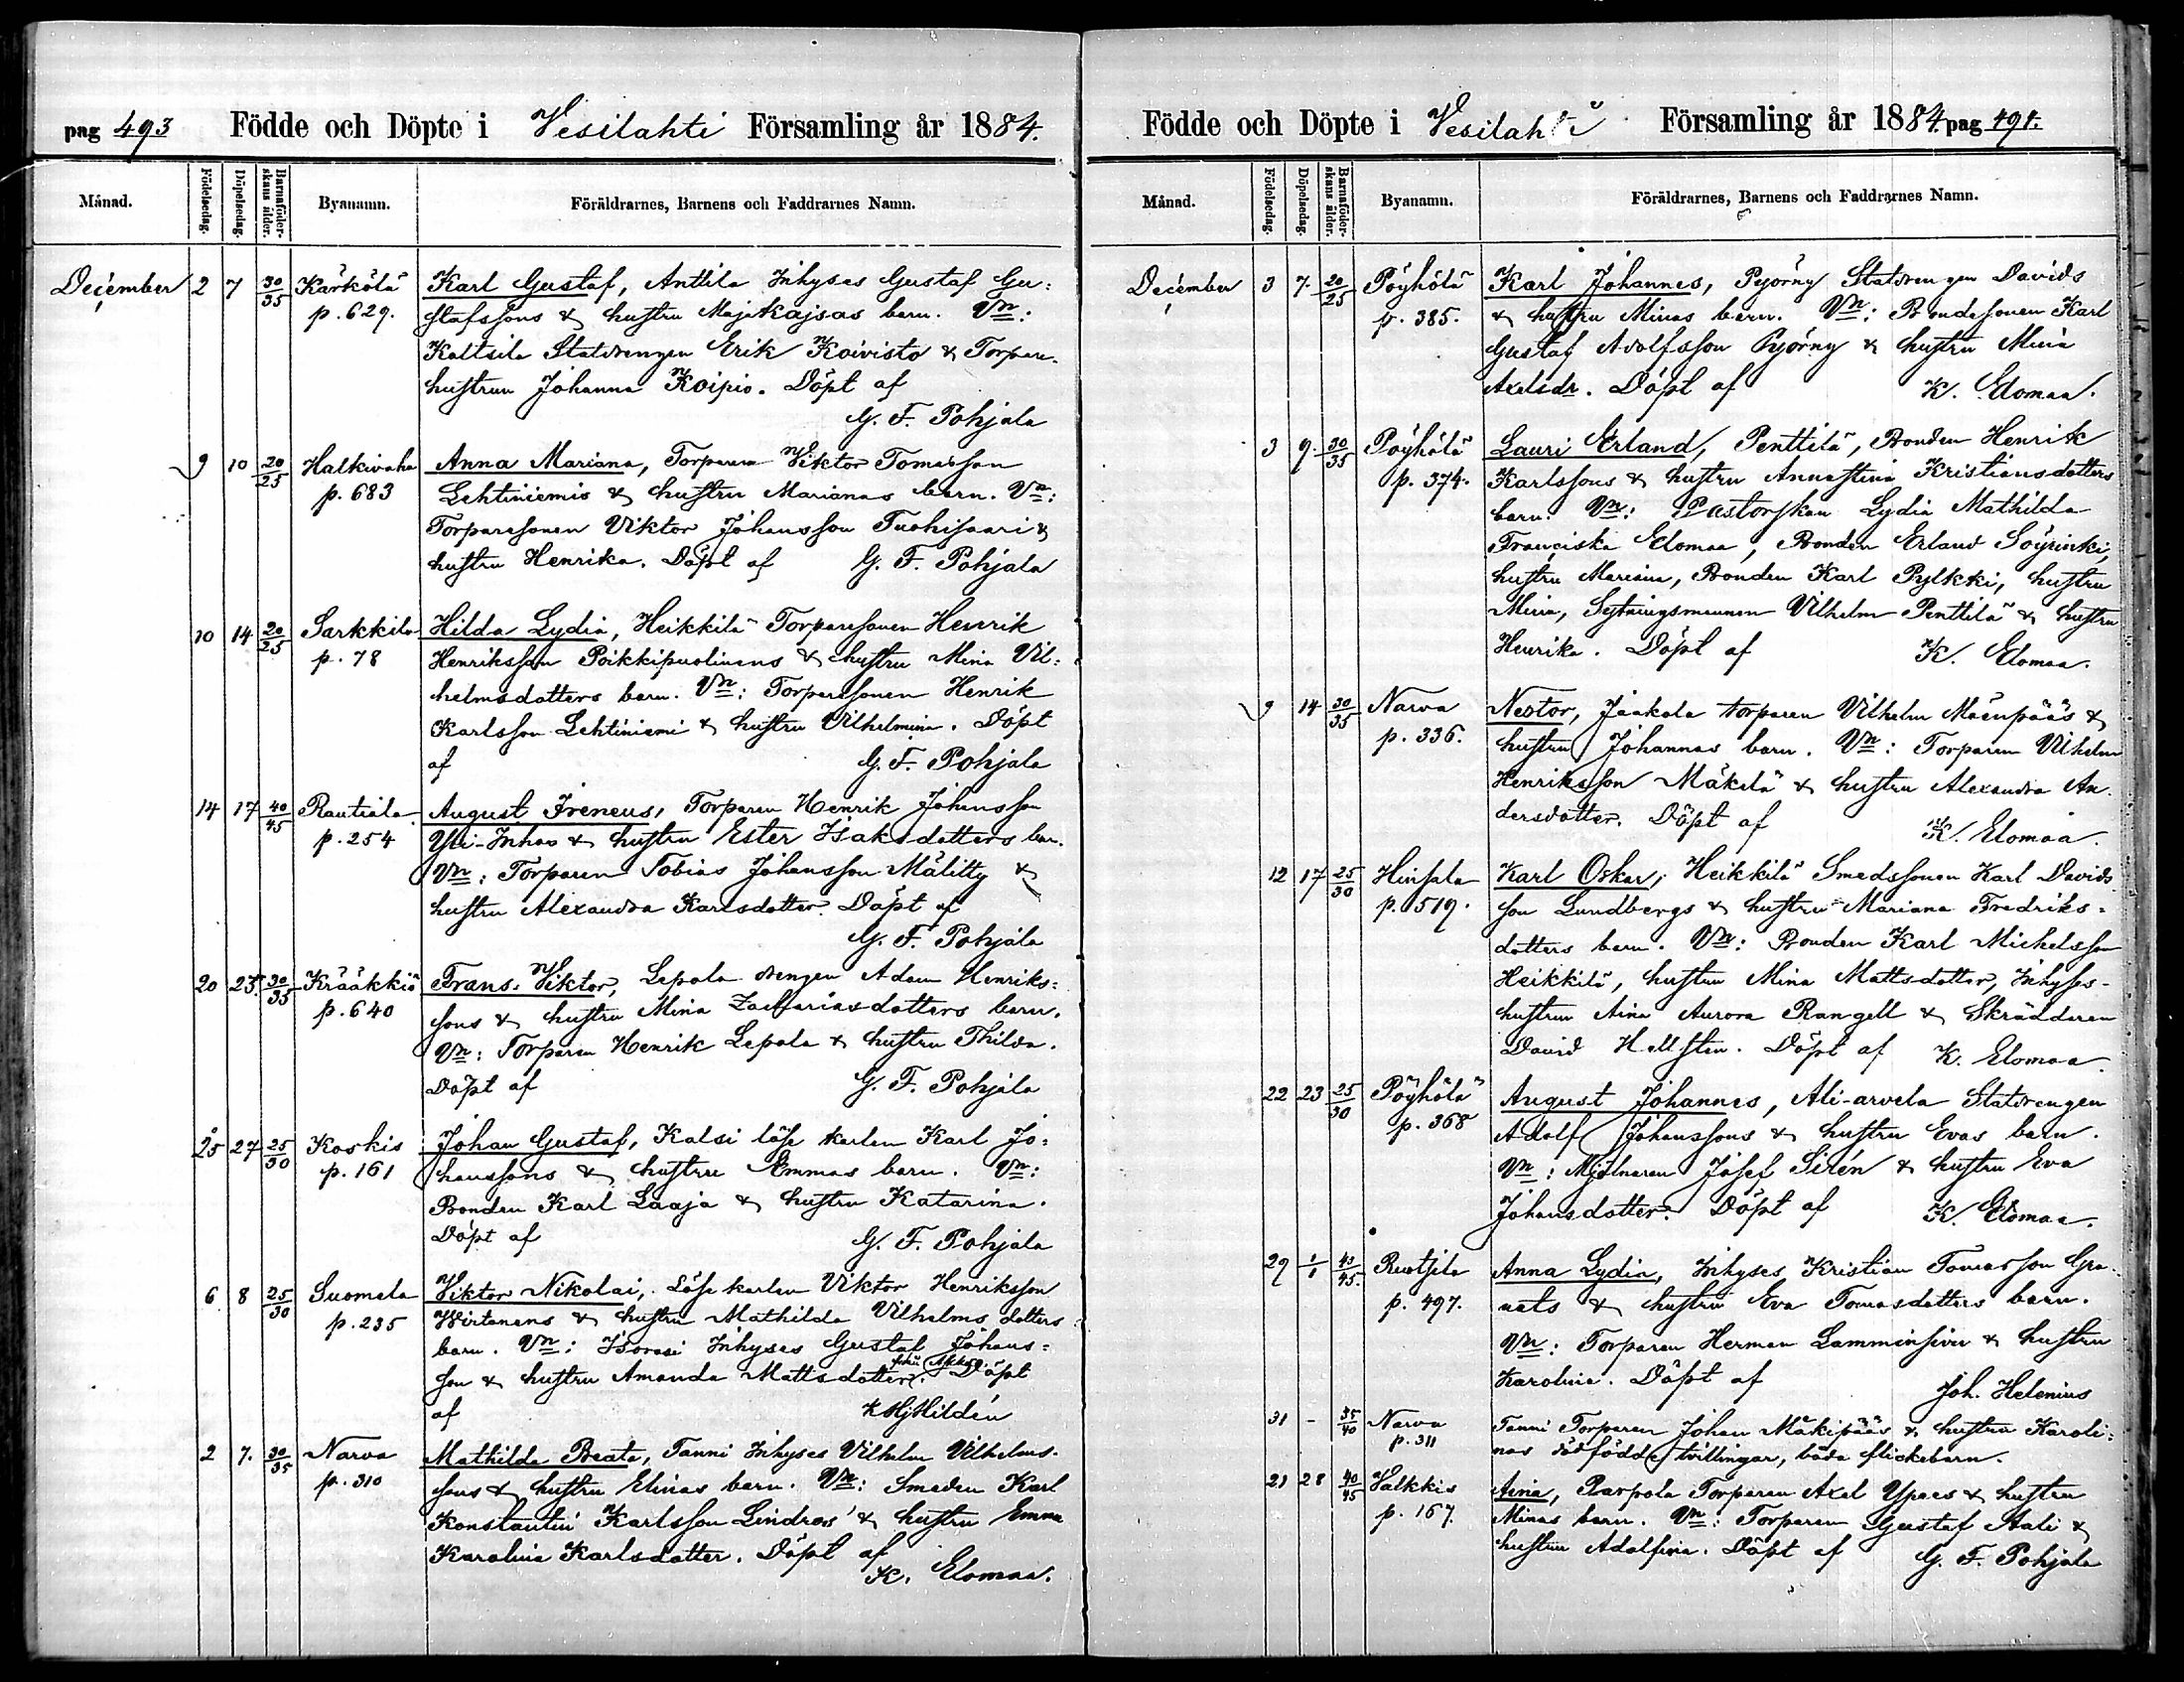 pag 493 Födde och Döpte i Vesilahti Församling år 1884.
Månad. Födelsedag. Döpelsedag. Barnaföderskans ålder. Byanamn. Föräldrarnes, Barnens och Faddrarnes Namn.
December 2 7 30/35 Kärkölä Karl Gustaf, Anttila Inhyses Gustaf Gu:
p. 629. stafssons & hustru Maja Kajsas barn. Vn:
Kaltsila Statdrengen Erik Koivisto & Torpare-
hustrun Johanna Koipio. Döpt af
G. F. Pohjala
9 10 20/25 Halkivaha Anna Mariana, Torparen Viktor Tomasson
p. 683 Lehtiniemis & hustru Marianas barn. Vn:
Torparesonen Viktor Johansson Tuohisaari &
hustru Henrika. Döpt af G. F. Pohjala
10 14 20/25 Sarkkila Hilda Lydia, Heikkilä Torparesonen Henrik
p. 78 Henriksson Poikkipuolinens & hustru Mina Vil:
helmsdotters barn. Vn: Torparesonen Henrik
Karlsson Lehtiniemi & hustru Vilhelmina. Döpt
af G. F. Pohjala
14 17 40/45 Rautiala August Ireneus, Torparen Henrik Johansson
p. 254 Yli-Inhas & hustru Ester Isaksdotters barn.
Vn: Torparen Tobias Johansson Mälitty &
hustru Alexandra Karlsdotter. Döpt af
G. F. Pohjala
20 25 30/35 Krääkkiö Frans Viktor, Lepola drengen Adam Henriks:
p. 640 sons & hustru Mina Zachariasdotters barn.
Vn: Torparen Henrik Lepola & hustru Thilda.
Döpt af G. F. Pohjala
25 27 25/30 Koskis Johan Gustaf, Kalsi lösekarlen Karl Jo:
p. 161 hanssons & hustru Emmas barn. Vn:
Bonden Karl Laaja & hustru Katarina.
Döpt af G. F. Pohjala
6 8 25/30 Suomela Viktor Nikolai, Lösekarlen Viktor Henriksson
p. 235 Wirtanens & hustru Mathilda Vilhelms dotters
barn. Vn: Inhyses Gustaf Johans:
son & hustru Amanda Mattsdotter. Döpt
af K Hj Hildén
2 7. 30/35 Narva Mathilda Beata, Tanni Inhyses Vilhelm Vilhelms-
p. 310 sons & hustru Elinas barn. Vn: Smeden Karl
Konstantin Karlsson Lindros & hustru Emma
Karolina Karlsdotter. Döpt af
K. Elomaa.
Födde och Döpte i Vesilahti Församling år 1884. pag 494.
Månad. Födelsedag. Döpelsedag. Barnaföderskans ålder. Byanamn. Föräldrarnes, Barnens och Faddrarnes Namn.
December 3 7. 20/25 Pöyhölä Karl Johannes, Pyörny Statdrengen Davids
p. 385. & hustru Minas barn. Vn: Bondesonen Karl
Gustaf Adolfsson Pyörny & hustru Mina
Axelsdr. Döpt af K. Elomaa.
3 9. 30/35 Pöyhölä Lauri Erland, Penttilä, Bonden Henrik
p. 374. Karlssons & hustru Annastina Kristiansdotters
barn. Vn: Pastorskan Lydia Mathilda
Franciska Elomaa, Bonden Erland Söyrinki,
hustru Mariana, Bonden Karl Pylkki, hustru
Mina, Sytningsmannen Vilhelm Penttilä & hustru
Henrika. Döpt af K. Elomaa.
9 14 30/35 Narva Nestor, Jaakola torparen Vilhelm Mäenpääs &
p. 336. hustru Johannas barn. Vn: Torparen Vilhelm
Henriksson Mäkelä & hustru Alexandra An-
dersdotter. Döpt af K. Elomaa.
12 17 25/30 Hinsala Karl Oskar, Heikkilä Smedssonen Karl Davids
p. 519. son Lundbergs & hustru Mariana Fredriks-
dotters barn. Vn: Bonden Karl Michelsson
Heikkilä, hustru Mina Mattsdotter, Inhyses-
hustrun Aina Aurora Rangell & Skräddaren
David Hellsten. Döpt af K. Elomaa.
22 23 25/30 Pöyhölä August Johannes, Ali-arvela Statdrengen
p. 368 Adolf Johanssons & hustru Evas barn.
Vn: Mjölnaren Josef Sirén & hustru Eva
Johansdotter. Döpt af K. Elomaa.
29 1/1 Anna Lydia, Inhyses Kristian Tomasson Gra-
p. 497. nats & hustru Eva Tomasdotters barn.
Vn: Torparen Herman Lamminsivu & hustru
Karolina. Döpt af Joh. Helenius
31 - 35/40 Narva Tanni Torparen Johan Mäkipääs & hustru Karoli:
p. 311 nas dödfödde tvillingar, båda flickebarn.
21 28 40/45 Valkkis Aina, Parpola Torparen Axel Ypaes & hustru
p. 167. Minas barn. Vn: Torparen Gustaf Aali &
hustru Adolfina. Döpt af G. F. Pohjala